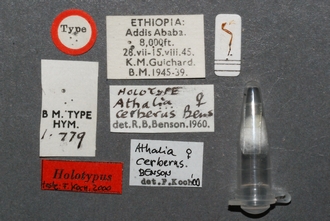 Type
ETHIOPIA:
Addis Ababa.
8,000ft.
28.vii-15.viii.45.
K.M. Guichard.
B.M.1945-39.
B M. TYPE
HYM.
1.779
HOLOTYPE
Athalia ♀
cerberus Bens
det.R.B.Benson.1960.
Holotypus
Athalia ♀
cerberus.
BENSON
det.F.Koch